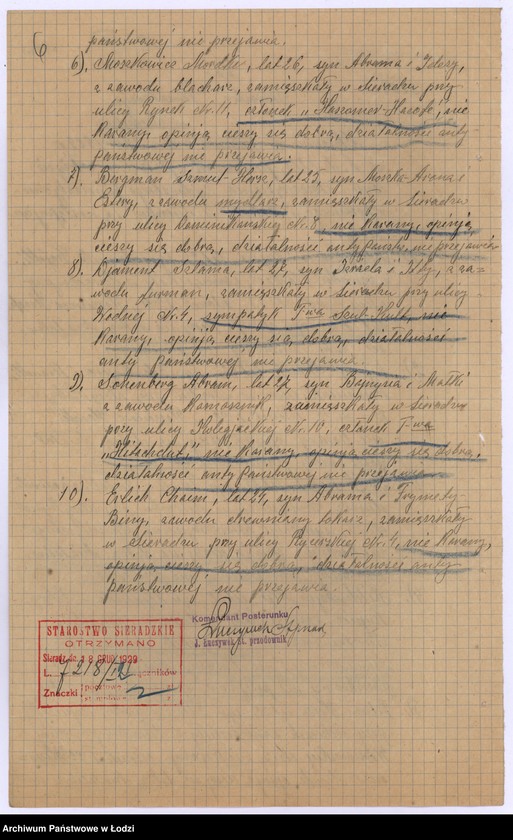 6
państwowej nie przejawia.
6). Moszkowicz Mordka, lat 26, syn Abrama i
z zawodu blacharz, zamięszkały w Sieradzu przy
ulicy Rynek Nr. 11, członek „Haszomer-Hacofe, nie
Karany, opinją cieszy się dobrą, działalności anty
państwowej nie przejawia.
7). Bergman Samul Hersz, lat 25, syn Moszka-Arona i
Estery, z zawodu mydlarz, zamięszkały w Sieradzu
przy ulicy Dominikańskiej Nr. 8, nie Karany, opinją
cieszy się dobrą, działalności antypaństw. nie przejawia
8). Djament Szlama, lat 27, syn Izraela i z za-
wodu furman, zamięszkały w Sieradzu przy ulicy
Wodnej Nr. 4, sympatyk T-wa nie
Karany, opinją cieszy się dobrą, działalności
anty państwowej nie przejawia.
9). Abram, lat 27, syn i Matki
z zawodu Kamasznik, zamięszkały w Sieradzu
przy ulicy Kolegjackiej Nr. 10, członek T-wa
nie Karany, opinją cieszy się dobrą,
działalności anty państwowej nie przejawia.
10). Erlich Chaim, lat 24, syn Abrama i Frymety
Biny, zawodu drewniany tokarz, zamięszkały
w Sieradzu przy ulicy Nr. 4, nie Karany,
opinją cieszy się dobrą, działalności anty-
państwowej nie przejawia.
Komendant Posterunku
J. Łuczywek st. przodownik
STAROSTWO SIERADZKIE
OTRZYMANO
Sieradz, dn. 18 GRUD 1929
L. 7218/ załączników
Znaczki 2
Archiwum Państwowe w Łodzi